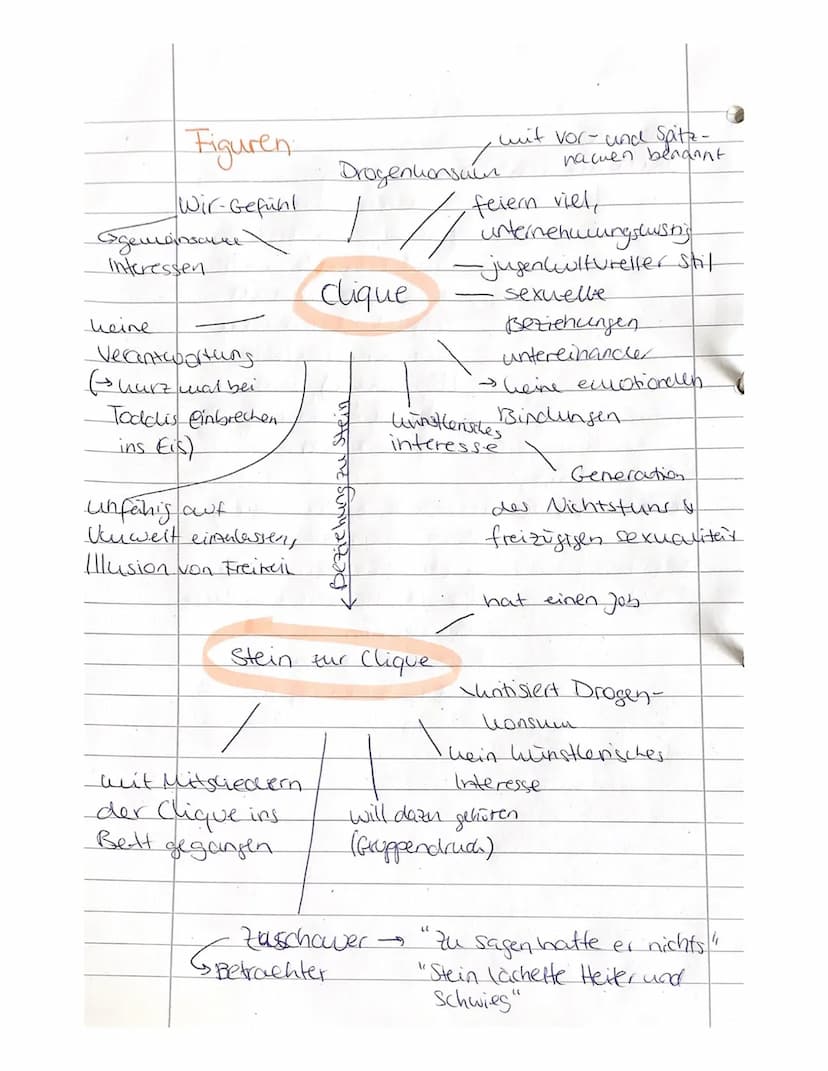 Figuren
mit Vor- und Spitz-
namen benannt
Drogenkonsum
Wir-Gefühl
↳gemeinsame
Interessen
feiern viel,
unternehmungslustig
jugendkultureller Stil
Clique
sexuelle
Beziehungen
untereinander
→ keine emotionalen
Bindungen
keine
Verantwortung
(→ kurz mal bei
Toddis einbrechen
ins Eis)
künstlerisches
interesse
Generation
des Nichtstuns &
freizügigen sexualität
unfähig auf
Umwelt einzulassen,
Illusion von Freiheit
Beziehung zu Stein
hat einen Job
Stein zur Clique
kritisiert Drogen-
konsum
kein künstlerisches
Interesse
mit Mitgliedern
der Clique ins
Bett gegangen
will dazu gehören
(Gruppendruck)
Zuschauer → "Zu sagen hatte er nichts"
↳Betrachter
"Stein lächelte Heiter und
schwieg"